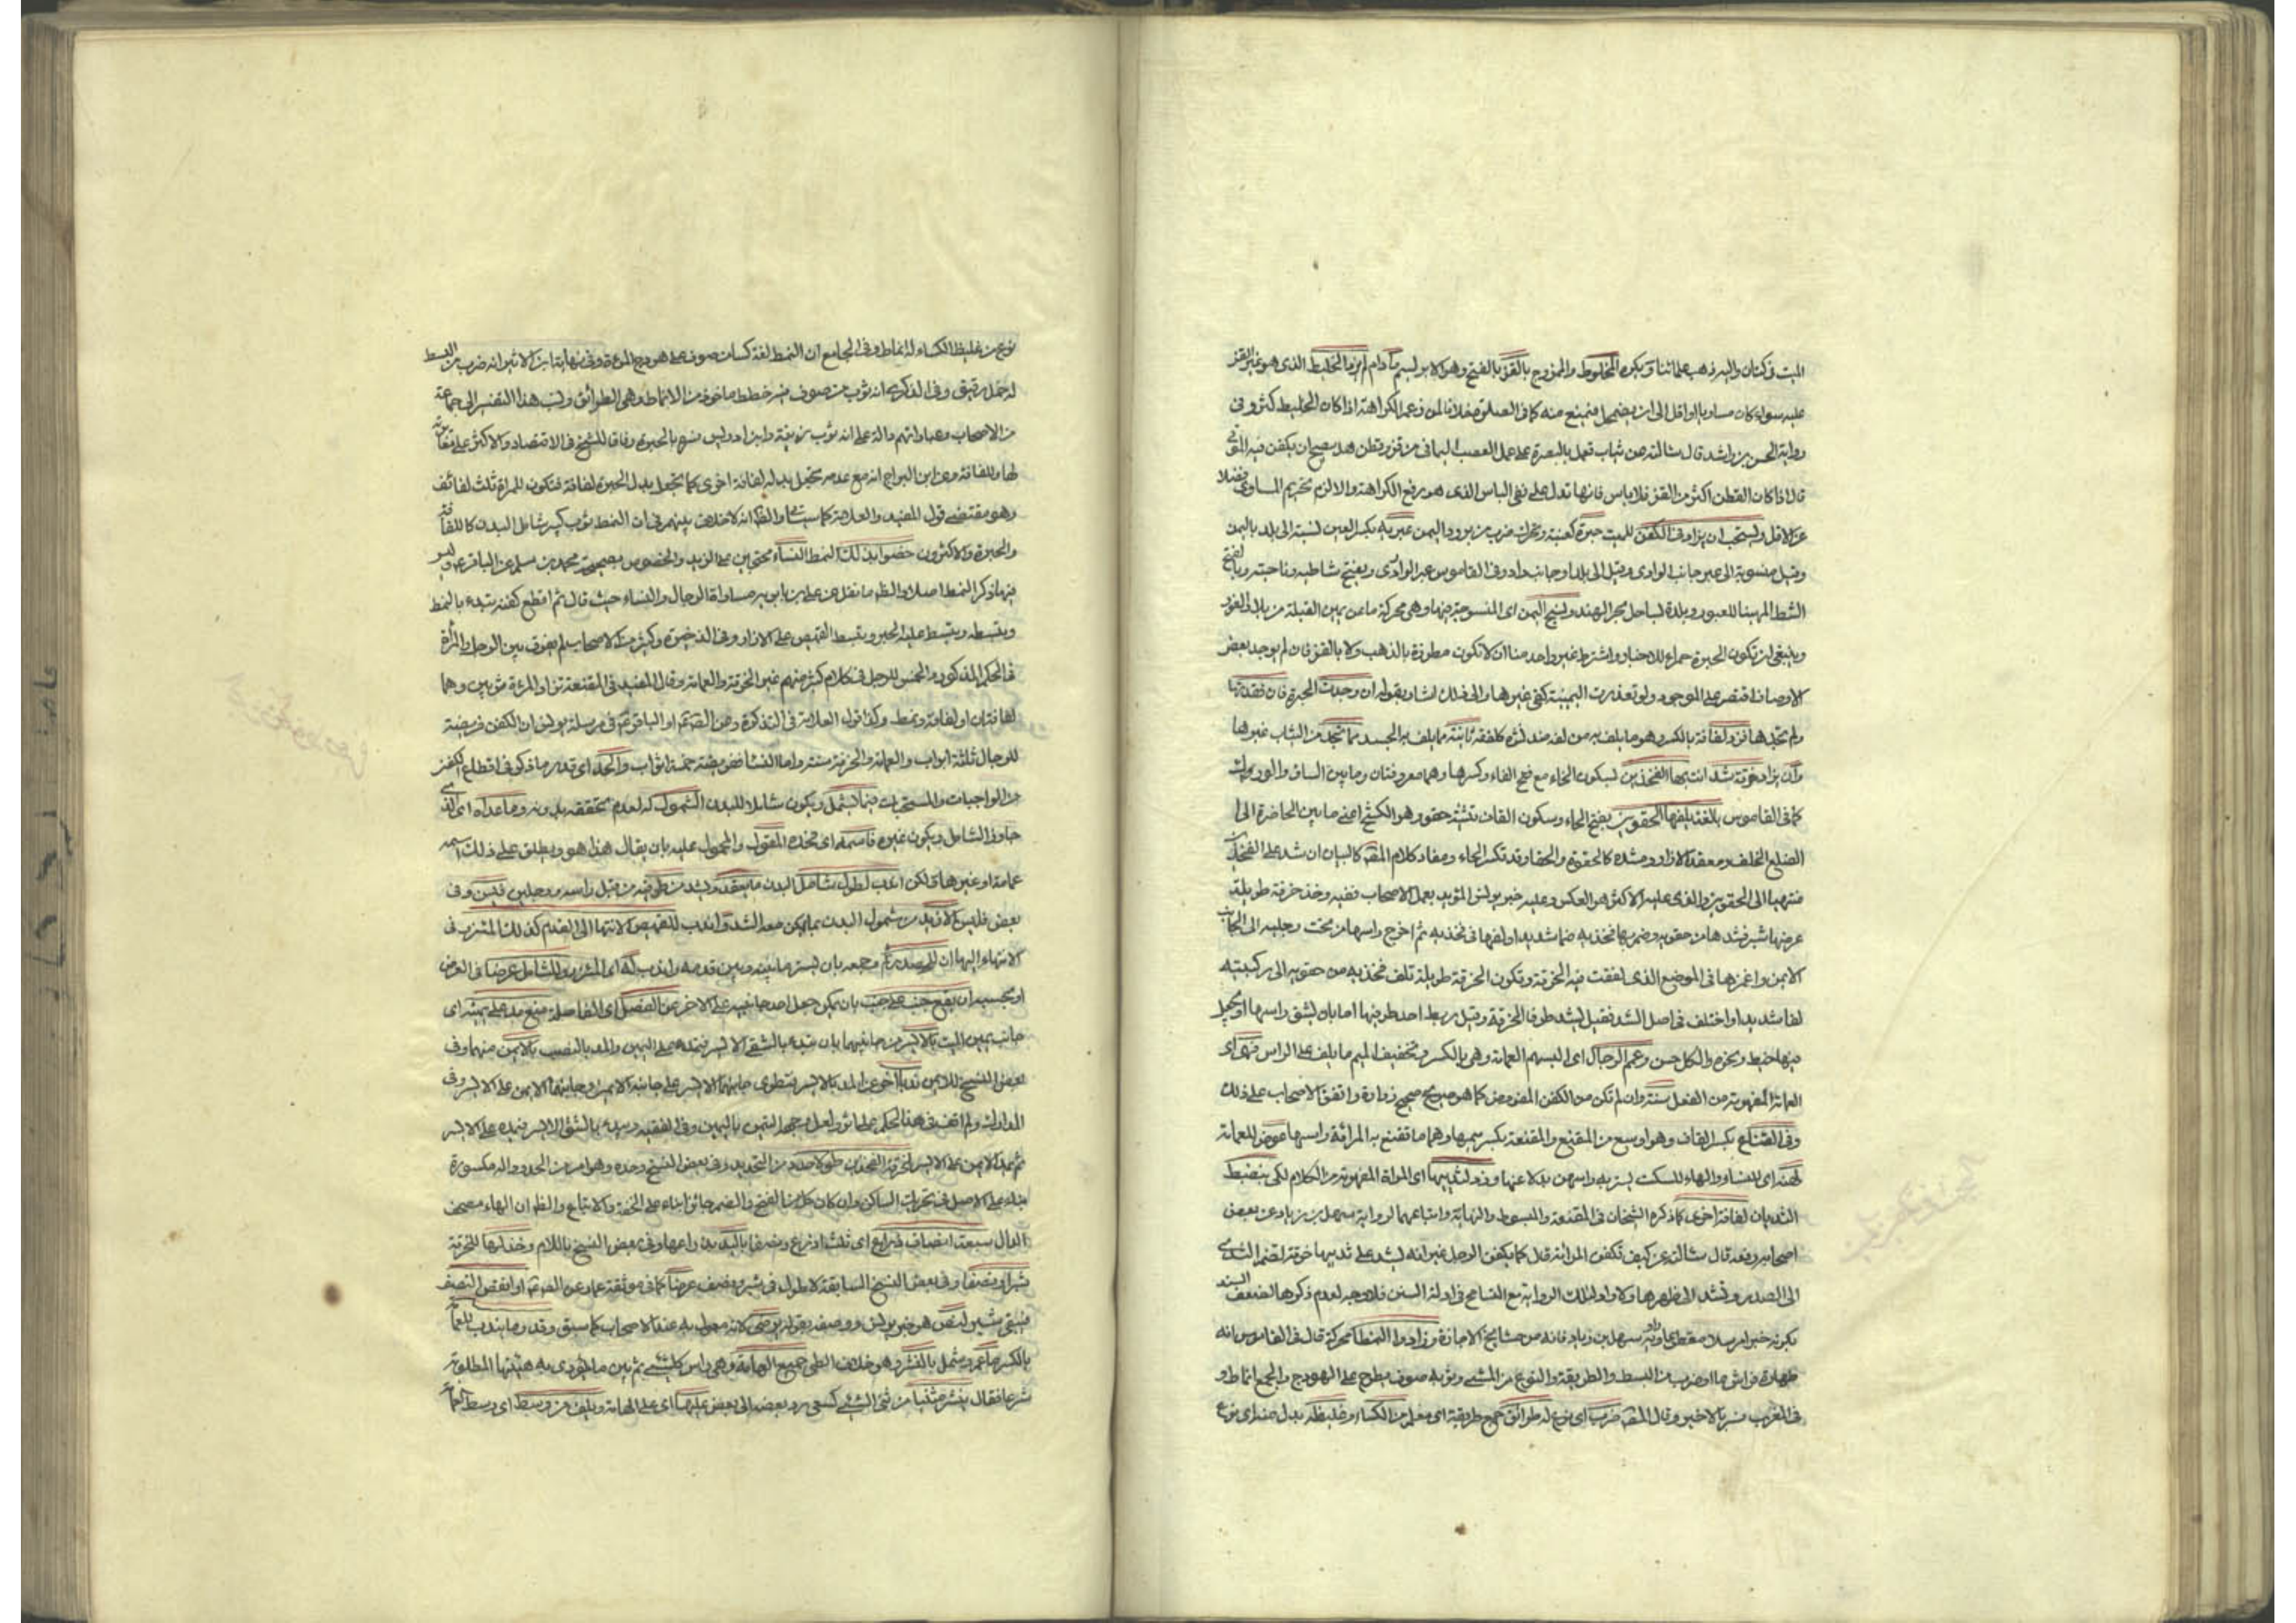 الميت في كتان واليه ذهب علمائنا ويكره المخلوط والممزوج بالقز بالفتح وهو الابريسم مادام الخليط الذى هو غير القز
عليه سواء كان مساويا او اقل الى ان يضمحل فيمنع منه كما فى الصلوة خلافا لمن زعم الكراهة اذا كان الخليط اكثر وفى
رواية الحسن بن راشد قال سالته عن ثياب تعمل بالبصرة على عمل العصب اليمانى من قز وقطن هل يصح ان يكفن فيه الموتى
قال اذا كان القطن اكثر من القز فلا باس فانها تدل على نفى الباس الذى هو رفع الكراهة والا لزم تحريم المساوى فضلا
عن الاقل ويستحب ان يزاد فى الكفن للميت حبرة كعنبة ضرب من برود اليمن عبرية بكسر العين نسبة الى بلد باليمن
وقيل منسوبة الى عبر جانب الوادى وقيل الى بلد او جانب واد وفى القاموس عبر الوادى ويفتح شاطيه وناحيته وبالفتح
الشط المهيا للعبور وبلدة بساحل بحر الهند ونسج اليمن اى المنسوجة فيها وهى محركة ما عن يمين القبلة من بلاد الغور
وينبغى ان تكون الحبرة حمراء للاخبار واشترط غير واحد منا ان لا تكون مطرزة بالذهب ولا بالقز فان لم يوجد بعض
الاوصاف اقتصر على الموجود ولو تعذرت اليمنية كفى غيرها والى ذلك اشار بقوله ان وجدت الحبرة فان فقدتها
ولم تجدها فزد لفافة بالكسر وهو ما يلف به من لفه ضد نشره كلفقه ثانية مما يلف به الجسد مما تجد من الثياب غيرها
وان يزاد خرقة شد انت بها الفخذين بسكون الخاء مع فتح الفاء وكسرها وهما معروفتان وما بين الساق والورك
كما فى القاموس بالغة بلفها الحقوين بفتح الحاء وسكون القاف تثنية حقو وهو الكشح اعنى ما بين الخاصرة الى
الضلع الخلف ومعقد الازار ومشده كالحقوة والحقاء وقد تكسر الحاء ومفاد كلام المص كالبيان ان شد على الفخذين
منتهيا الى الحقوين والذى عليه الاكثر هو العكس وعليه خبر يونس المؤيد بعمل الاصحاب ففيه وخذ خرقة طويلة
عرضها شبر فشدها من حقويه وضم فخذيه ضما شديدا ولفها فى فخذيه ثم اخرج راسها من تحت رجليه الى الجانب
الايمن واغمزها فى الموضع الذى لففت فيه الخرقة وتكون الخرقة طويلة تلف فخذيه من حقويه الى ركبتيه
لفا شديدا واختلف فى اصل الشد فقيل يشد طرفا الخرقة وقيل ربط احد طرفيها اما بان يشق راسها او يجعل
فيها خيط ونحوه والكل حسن وعمم الرجال اى البسهم العمامة وهى بالكسر وتخفيف الميم ما يلف على الراس فهى اى
العمامة المفهومة من الفعل سنة وان لم تكن من الكفن المفروض كما هو صريح صحيح زرارة واتفق الاصحاب على ذلك
وفى القناع بكسر القاف وهو اوسع من المقنع والمقنعة بكسر ميمها وهما ما تقنع به المرأة راسها عوض للعمامة
لهنه اى للنساء والهاء للسكت يستر به راسهن بدلا عنها وزد لثدييها اى المراة المفهومة من الكلام لكى ينضبط
الثديان لفافة اخرى كما ذكره الشيخان فى المقنعة والمبسوط والنهاية واتباعهما لرواية سهل بن زياد عن بعض
اصحابه رفعه قال سالته عن كيف تكفن المراة قال كما يكفن الرجل غير انه يشد على ثدييها خرقة تضم الثدى
الى الصدر وتشد الى ظهرها ولا راد لتلك الرواية مع التسامح فى ادلة السنن فلا وجه لعدم ذكرها لضعف السند
بكونه خبرا مرسلا مقطوعا وراويه سهل بن زياد فانه من مشايخ الاجازة وزادوا النمط محركة قال فى القاموس انه
ظهارة فراش ما او ضرب من البسط والطريقة والنوع من الشيء وثوب صوف يطرح على الهودج والجمع انماط و
فى المغرب فسر بالاخير وقال المص ضرب اى نوع له طرائق جمع طريقة اى معلم من الكساء وغليظه بدل منه اى نوع
نوع من غليظ الكساء له انماط وفى الجامع ان النمط لغة كساء من صوف على هودج المرءة وفى نهاية ابن الاثير انه ضرب من البسط
له خمل رقيق وفى الذكرى انه ثوب من صوف فيه خطط ماخوذ من الانماط وهى الطرائق ونسب هذا التفسير الى جماعة
من الاصحاب وعباراتهم دالة على انه ثوب زينة وابن ادريس فسره بالحبرة وفاقا للشيخ فى الاقتصاد والاكثر على مغايرته
لها وللفافة وعن ابن البراج انه مع عدمه تجعل بدله لفافة اخرى كما تجعل بدل الحبرة لفافة فتكون للمراة ثلث لفائف
وهو مقتضى قول المفيد والعلامة كما سيتلى والظ انه لا خلاف بينهم فى ان النمط ثوب كبير شامل البدن كاللفافة
والحبرة والاكثرون خصوا بذلك النمط النساء محتجين على الزيد والخصوص بصحيحة محمد بن مسلم عن الباقر ع وليس
فيها ذكر النمط اصلا والظ ما نقل عن على بن بابويه مساواة الرجال والنساء حيث قال ثم اقطع كفنه تبدء بالنمط
وتبسطه وتبسط عليه الحبرة وتبسط القميص على الازار وفى الذخيرة وكثير من الاصحاب لم يفرق بين الرجل والمرأة
فى الحكم المذكور والخمس للرجل فى كلام كثير منهم غير الخرقة والعمامة وقال المفيد فى المقنعة تزاد المرءة ثوبين وهما
لفافتان او لفافة ونمط وكذا قول العلامة فى التذكرة وعن الصادق او الباقر ع فى مرسلة يونس ان الكفن فريضة
للرجال ثلثة اثواب والعمامة والخرقة سنة واما النساء ففريضة خمسة اثواب والحد اى قدر ما ذكر فى اقطاع الكفن
من الواجبات والمستحبات فيما يشمل ويكون شاملا للبدن الشمول له لعدم تحققه بدونه وما عداه اى الذى
جاوز الشامل ويكون غيره فاسمه اى فحده المقول والمحمول عليه بان يقال هذا هو ويطلق على ذلك اسمه
عمامة او غيرها ولكن اندب لطول شامل البدن ما يعقد ويشد من طرفيه من قبل راسه ورجليه فليس وفى
بعض فليس لا بد من شمول البدن بما يمكن معه الشد واندب للقميص الانتهاء الى القدم كذلك المئزر فى
الانتهاء اليها ان للصدر ثم وجمعه بان يستر ما بينه وبين قدمه واندب له اى المئزر والشامل عرضا فى العرض
او بحسبه ان يقع جنب على جنب بان يمكن جعل احد جانبيه على الاخر عن الفصل اى الفاصلة فيقع مده على يمينه اى
جانب يمين الميت بالايسر من جانبيهما بان يبدء بالشق الايسر فيمده على اليمين والمد بالنصب بالايمن منهما وفى
بعض النسخ للايمن ندبا اخر عن المد بالايسر فتطوى جانبهما الايسر على جانبه الايمن وجانبهما الايمن على الايسر وفى
المدارك ولم اقف فى هذا الحكم على اثر ولعل وجهه التيمن باليمين وفى الفقيه ويبدء بالشق الايسر فيمده على الايسر
ثم يمد الايمن على الايسر لخرقة الفخذين طولا حدد من التحديد وفى بعض النسخ وحده وهو امر من الحدود والدال مكسورة
بناء على الاصل فى تحريك الساكن وان كان كل من الفتح والضم جائزا بناء على الخفة والاتباع والظ ان الهاء مصحف
الدال سبعة انصاف ذراع اى ثلث اذرع ونصفا باليدين راعها وفى بعض النسخ باللام وخذ لها للخرقة
شبرا ونصفا وفى بعض النسخ السابقة لا طول فى شبر ونصف عرضا كما فى موثقة عمار عن الصادق ع او انقص النصف
فيبقى شبر لنص هو خبر يونس ووصفه بقوله يرضى لانه معمول به عند الاصحاب كما سبق وقدر ما يندب للعمامة
بالكسر ما عم وشمل بالنشر وهو خلاف الطى جميع الهامة وهى راس كل شىء ثم بين ما يؤدى به هيئتها المطلوبة
شرعا فقال ينشر مثنيا من ثنى الشىء كسعى رد بعضه الى بعض عليها اى على الهامة ويلف من وسط اى وسط العمامة